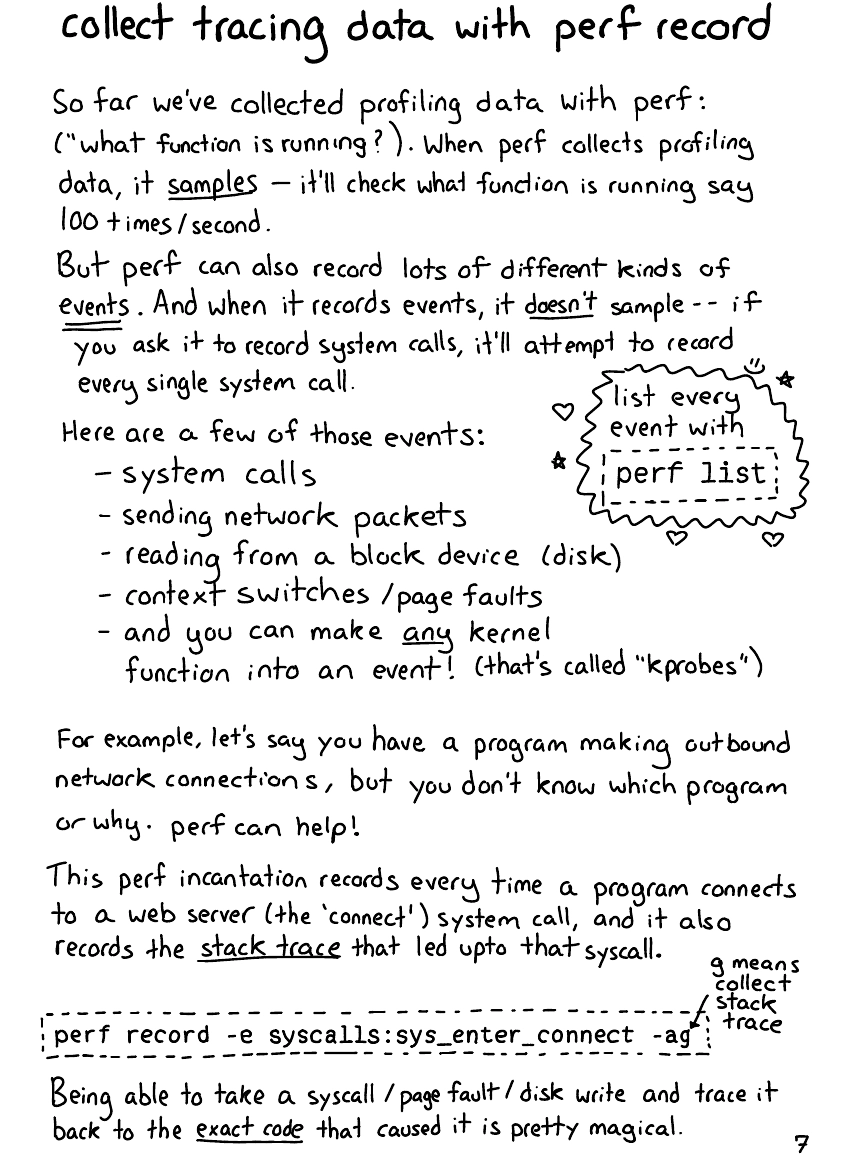 collect tracing data with perf record
So far we've collected profiling data with perf:
("what function is running?). When perf collects profiling
data, it samples – it'll check what function is running say
100 times/second.
But perf can also record lots of different kinds of
events. And when it records events, it doesn't sample -- if
you ask it to record system calls, it'll attempt to record
every single system call.
list every
event with
perf list
Here are a few of those events:
- system calls
- sending network packets
- reading from a block device (disk)
- context switches /page faults
- and you can make any kernel
function into an event! (that's called "kprobes")
For example, let's say you have a program making outbound
network connections, but you don't know which program
or why. perf can help!
This perf incantation records every time a program connects
to a web server (the 'connect') system call, and it also
records the stack trace that led upto that syscall.
g means
collect
stack
trace
perf record -e syscalls:sys_enter_connect -ag
Being able to take a syscall / page fault / disk write and trace it
back to the exact code that caused it is pretty magical.
7